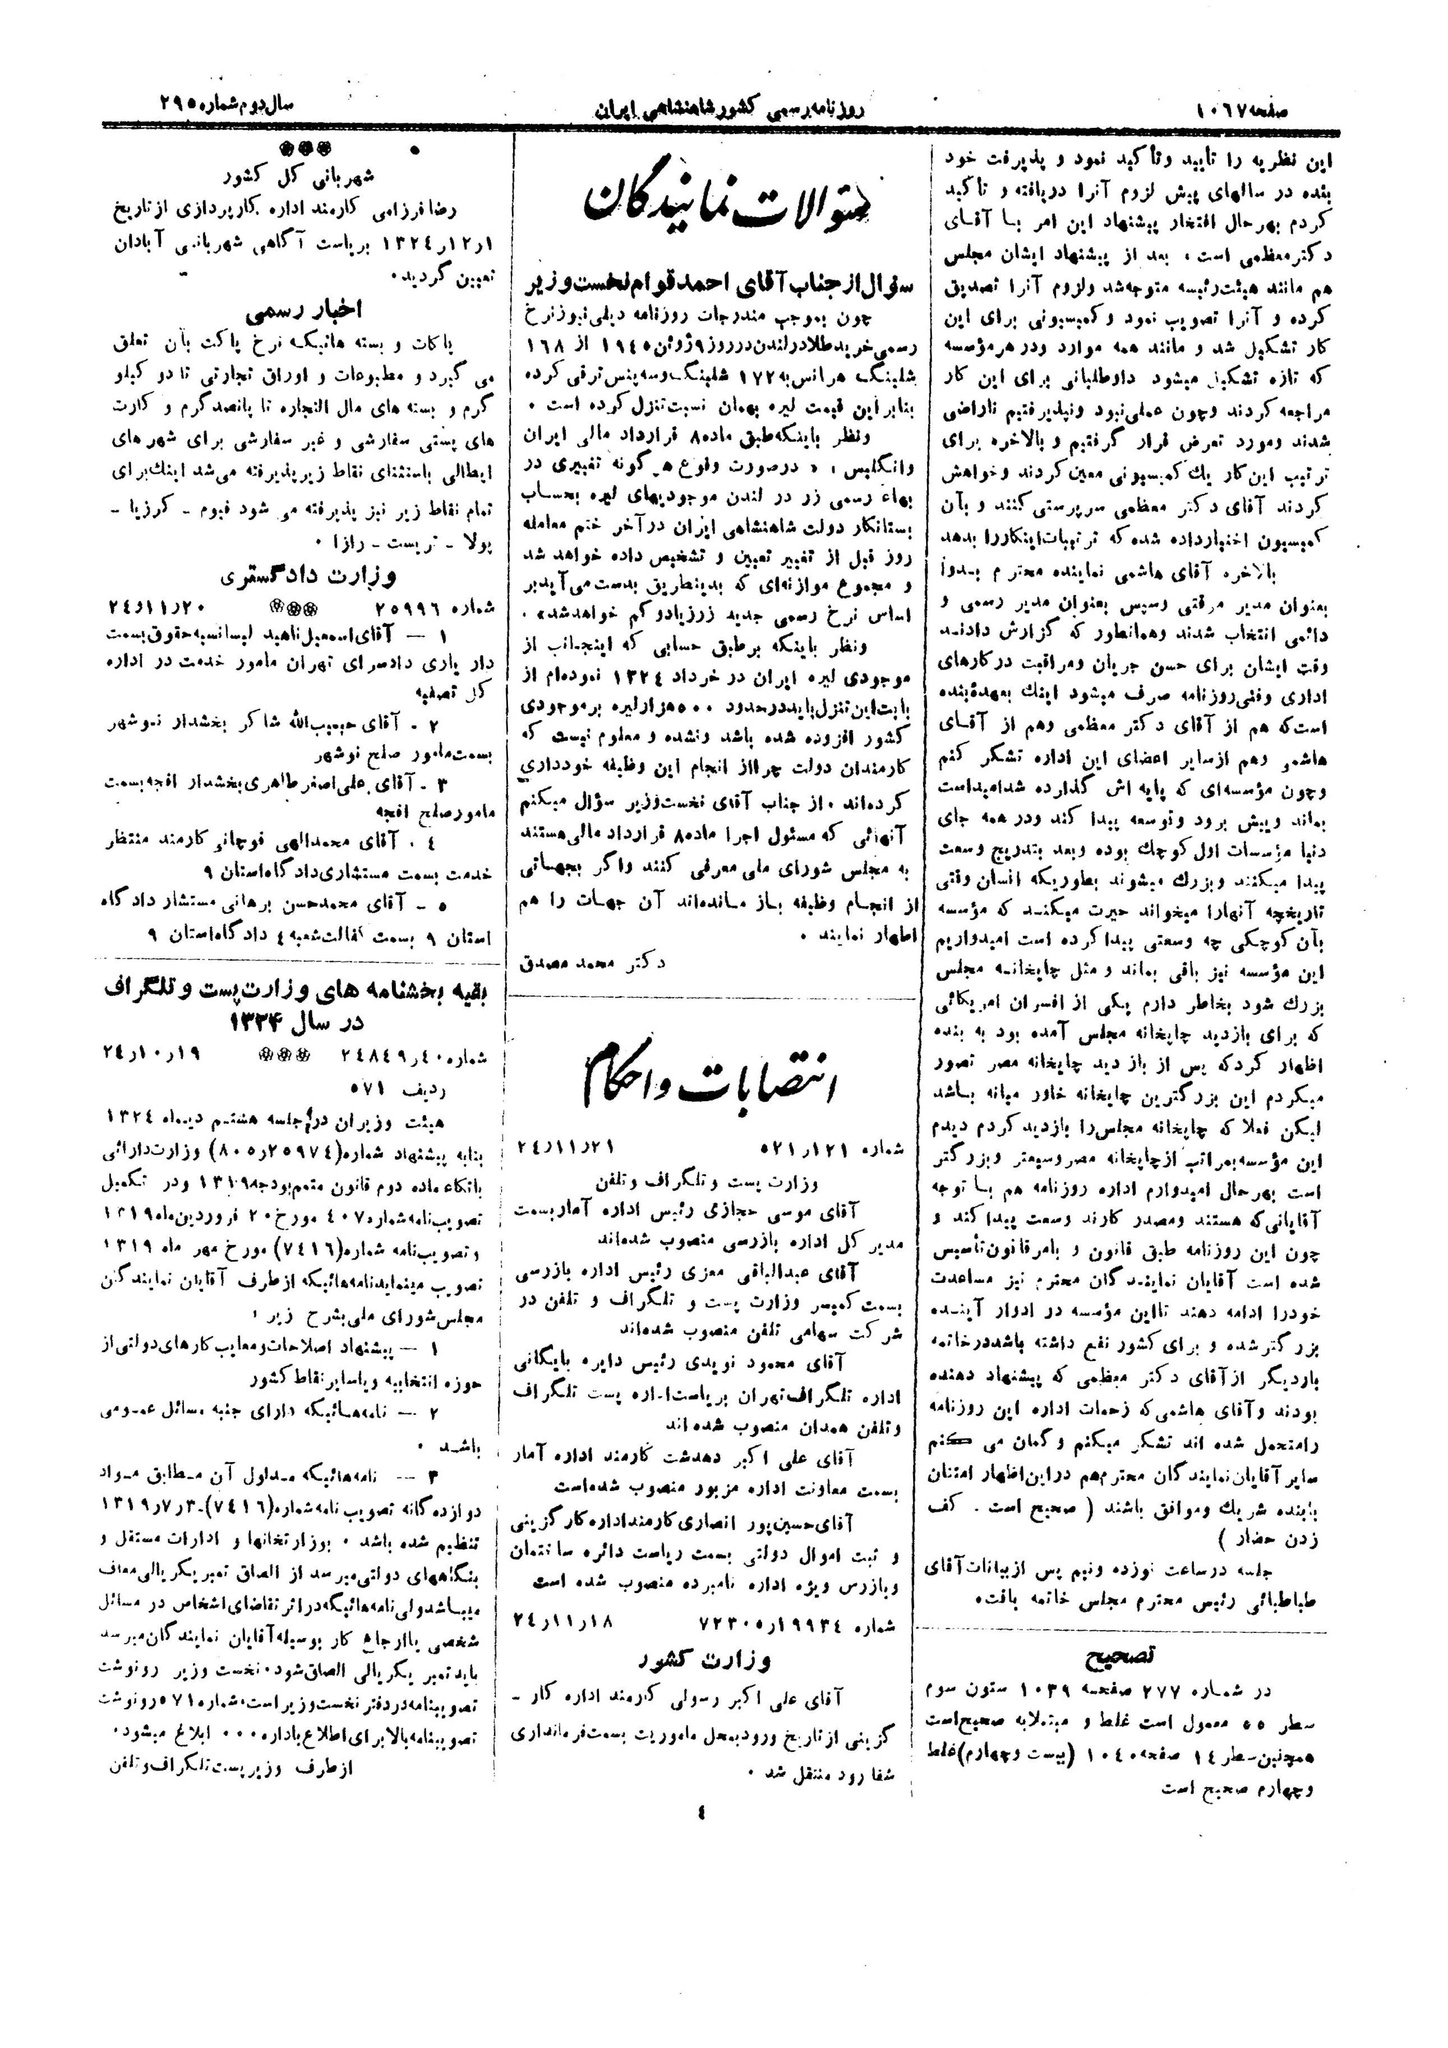 صفحه ۱۰۶۷
روزنامه رسمی کشور شاهنشاهی ایران
سال دوم شماره ۲۹۵
این نظریه را تأیید و تأکید نمود و پذیرفت خود
بنده در سالهای پیش لزوم آنرا دریافته و تأکید
کردم بهرحال افتخار پیشنهاد این امر با آقای
دکتر معظمی است ، بعد از پیشنهاد ایشان مجلس
هم مانند هیئت رئیسه متوجه شد و لزوم آنرا تصدیق
کرده و آنرا تصویب نمود و کمیسیونی برای این
کار تشکیل شد و مانند همه موارد و در هر مؤسسه
که تازه تشکیل میشود داوطلبانی برای این کار
مراجعه کردند و چون عملی نبود و نپذیرفتیم ناراضی
شدند و مورد تعرض قرار گرفتیم و بالاخره برای
ترتیب این کار یك کمیسیونی معین کردند و خواهش
کردند آقای دکتر معظمی سرپرستی کنند و بآن
کمیسیون اختیار داده شد که ترتیبات اینکار را بدهد
بالاخره آقای هاشمی نماینده محترم بدواً
بعنوان مدیر موقتی و سپس بعنوان مدیر رسمی و
دائمی انتخاب شدند و همانطور که گزارش دادند
وقت ایشان برای حسن جریان و مراقبت در کارهای
اداری و فنی روزنامه صرف میشود اینك بعهدۀ بنده
است که هم از آقای دکتر معظمی و هم از آقای
هاشمی و هم از سایر اعضای این اداره تشکر کنم
و چون مؤسسه‌ای که پایه اش گذارده شد امید است
بماند و پیش برود و توسعه پیدا کند و در همه جای
دنیا مؤسسات اول کوچك بوده و بعد بتدریج وسعت
پیدا میکنند و بزرك میشوند بطوریکه انسان وقتی
تاریخچه آنهارا میخواند حیرت میکند که مؤسسه
بآن کوچکی چه وسعتی پیدا کرده است امیدواریم
این مؤسسه نیز باقی بماند و مثل چاپخانه مجلس
بزرك شود بخاطر دارم یکی از افسران امریکائی
که برای بازدید چاپخانه مجلس آمده بود به بنده
اظهار کرد که پس از باز دید چاپخانه مصر تصور
میکردم این بزرگترین چاپخانه خاور میانه باشد
لیکن فعلا که چاپخانه مجلس را بازدید کردم دیدم
این مؤسسه بمراتب از چاپخانه مصر وسیعتر و بزرگتر
است بهرحال امیدوارم اداره روزنامه هم با توجه
آقایانی که هستند و مصدر کارند وسعت پیدا کند و
چون این روزنامه طبق قانون و بامر قانون تأسیس
شده است آقایان نمایندگان محترم نیز مساعدت
خودرا ادامه دهند تا این مؤسسه در ادوار آینده
بزرگتر شده و برای کشور نفع داشته باشد در خاتمه
بار دیگر از آقای دکتر معظمی که پیشنهاد دهنده
بودند و آقای هاشمی که زحمات اداره این روزنامه
را متحمل شده اند تشکر میکنم و گمان می کنم
سایر آقایان نمایندگان محترم هم در این اظهار امتنان
با بنده شریك و موافق باشند ( صحیح است . کف
زدن حضار )
جلسه در ساعت نوزده و نیم پس از بیانات آقای
طباطبائی رئیس محترم مجلس خاتمه یافت.
تصحیح
در شماره ۲۷۷ صفحه ۱۰۳۹ ستون سوم
سطر ۵۵ معمول است غلط و مبتلابه صحیح است
همچنین سطر ۱۴ صفحه ۱۰۴۰ (بیست و چهارم) غلط
و چهارم صحیح است
سئوالات نمایندگان
سئوال از جناب آقای احمد قوام نخست وزیر
چون بموجب مندرجات روزنامه دیلی نیوز نرخ
رسمی خرید طلا در لندن در روز ۹ ژوئن ۱۹۴۵ از ۱۶۸
شلینگ هر انس به ۱۷۲ شلینگ و سه پنس ترقی کرده
بنابر این قیمت لیره بهمان نسبت تنزل کرده است .
و نظر باینکه طبق ماده ۸ قرارداد مالی ایران
و انگلیس : « در صورت وقوع هر گونه تغییری در
بهاء رسمی زر در لندن موجودیهای لیره بحساب
بستانکار دولت شاهنشاهی ایران در آخر ختم معامله
روز قبل از تغییر تعیین و تشخیص داده خواهد شد
و مجموع موازنه‌ای که بدینطریق بدست می آید بر
اساس نرخ رسمی جدید زر زیاد و کم خواهد شد» .
و نظر باینکه بر طبق حسابی که اینجانب از
موجودی لیره ایران در خرداد ۱۳۲۴ نموده‌ام از
بابت این تنزل باید در حدود ۵۰۰ هزار لیره بر موجودی
کشور افزوده شده باشد و نشده و معلوم نیست که
کارمندان دولت چرا از انجام این وظیفه خودداری
کرده‌اند ، از جناب آقای نخست وزیر سؤال میکنم
آنهائی که مسئول اجرا ماده ۸ قرارداد مالی هستند
به مجلس شورای ملی معرفی کنند و اگر بجهاتی
از انجام وظیفه باز مانده‌اند آن جهات را هم
اظهار نمایند .
دکتر محمد مصدق
انتصابات و احکام
شماره ۱۲۱ر۵۲۱ ۲۱ر۱۱ر۲۴
وزارت پست و تلگراف و تلفن
آقای موسی حجازی رئیس اداره آمار بسمت
مدیر کل اداره بازرسی منصوب شده‌اند
آقای عبدالباقی معزی رئیس اداره بازرسی
بسمت کمیسر وزارت پست و تلگراف و تلفن در
شرکت سهامی تلفن منصوب شده‌اند
آقای محمود نویدی رئیس دایره بایگانی
اداره تلگراف تهران بریاست اداره پست تلگراف
و تلفن همدان منصوب شده اند
آقای علی اکبر دهدشت کارمند اداره آمار
بسمت معاونت اداره مزبور منصوب شده است
آقای حسین پور انصاری کارمند اداره کارگزینی
و ثبت اموال دولتی بسمت ریاست دائره ساختمان
و بازرس ویژه اداره نامبرده منصوب شده است
شماره ۱۹۹۳۴ر۷۲۳۰۵ ۱۸ر۱۱ر۲۴
وزارت کشور
آقای علی اکبر رسولی کارمند اداره کار ـ
گزینی از تاریخ ورود بمحل ماموریت بسمت فرمانداری
شفا رود منتقل شد .
شهربانی کل کشور
رضا فرزامی کارمند اداره کارپردازی از تاریخ
۱ر۱۲ر۱۳۲۴ بریاست آگاهی شهربانی آبادان
تعیین گردید.
اخبار رسمی
پاکات و بسته هائیکه نرخ پاکت بآن تعلق
می گیرد و مطبوعات و اوراق تجارتی تا دو کیلو
گرم و بسته های مال التجاره تا پانصد گرم و کارت
های پستی سفارشی و غیر سفارشی برای شهر های
ایطالی باستثنای نقاط زیر پذیرفته می شد اینك برای
تمام نقاط زیر نیز پذیرفته می شود فیوم ـ کرزیا ـ
پولا ـ تریست ـ زارا .
وزارت دادگستری
شماره ۲۵۹۹۶ ۲۰ر۱۱ر۲۴
۱ ـ آقای اسمعیل ناهید لیسانسیه حقوق بسمت
داریاری دادسرای تهران مامور خدمت در اداره
کل تصفیه
۲ ـ آقای حبیب‌الله شاکر بخشدار نوشهر
بسمت مامور صلح نوشهر
۳ ـ آقای علی اصغر طاهری بخشدار افجه بسمت
مامور صلح افجه
۴ ـ آقای محمد الهی قوچانی کارمند منتظر
خدمت بسمت مستشاری دادگاه استان ۹
۵ ـ آقای محمد حسن برهانی مستشار دادگاه
استان ۹ بسمت کفالت شعبه ۴ دادگاه استان ۹
بقیه بخشنامه های وزارت پست و تلگراف
در سال ۱۳۲۴
شماره ۴۰ر۲۴۸۴۹ ۱۹ر۱۰ر۲۴
ردیف ۵۷۱
هیئت وزیران در جلسه هشتم دیماه ۱۳۲۴
بنابه پیشنهاد شماره (۲۵۹۷۴ر۸۰۵) وزارت دارائی
باتکاء ماده دوم قانون متمم بودجه ۱۳۱۹ و در تکمیل
تصویب نامه شماره ۴۰۷ مورخ ۲۰ فروردین ماه ۱۳۱۹
و تصویب نامه شماره (۷۴۱۶) مورخ مهر ماه ۱۳۱۹
تصویب مینماید نامه هائیکه از طرف آقایان نمایندگان
مجلس شورای ملی بشرح زیر :
۱ ـ پیشنهاد اصلاحات و معایب کارهای دولتی از
حوزه انتخابیه و یا سایر نقاط کشور
۲ ـ نامه هائیکه دارای جنبه مسائل عمومی
باشد .
۳ ـ نامه هائیکه مدلول آن مطابق مواد
دوازده گانه تصویب نامه شماره (۷۴۱۶)ـ۳ر۷ر۱۳۱۹
تنظیم شده باشد . بوزارتخانها و ادارات مستقل و
بنگاههای دولتی میرسد از الصاق تمبر یکریالی معاف
میباشد ولی نامه هائیکه در اثر تقاضای اشخاص در مسائل
شخصی یا ارجاع کار بوسیله آقایان نمایندگان میرسد
باید تمبر یکریالی الصاق شود . نخست وزیر رونوشت
تصویبنامه در دفتر نخست وزیر است ، شماره ۵۷۱ رونوشت
تصویبنامه بالا برای اطلاع باداره ۰۰۰ ابلاغ میشود .
از طرف وزیر پست تلگراف و تلفن
۴